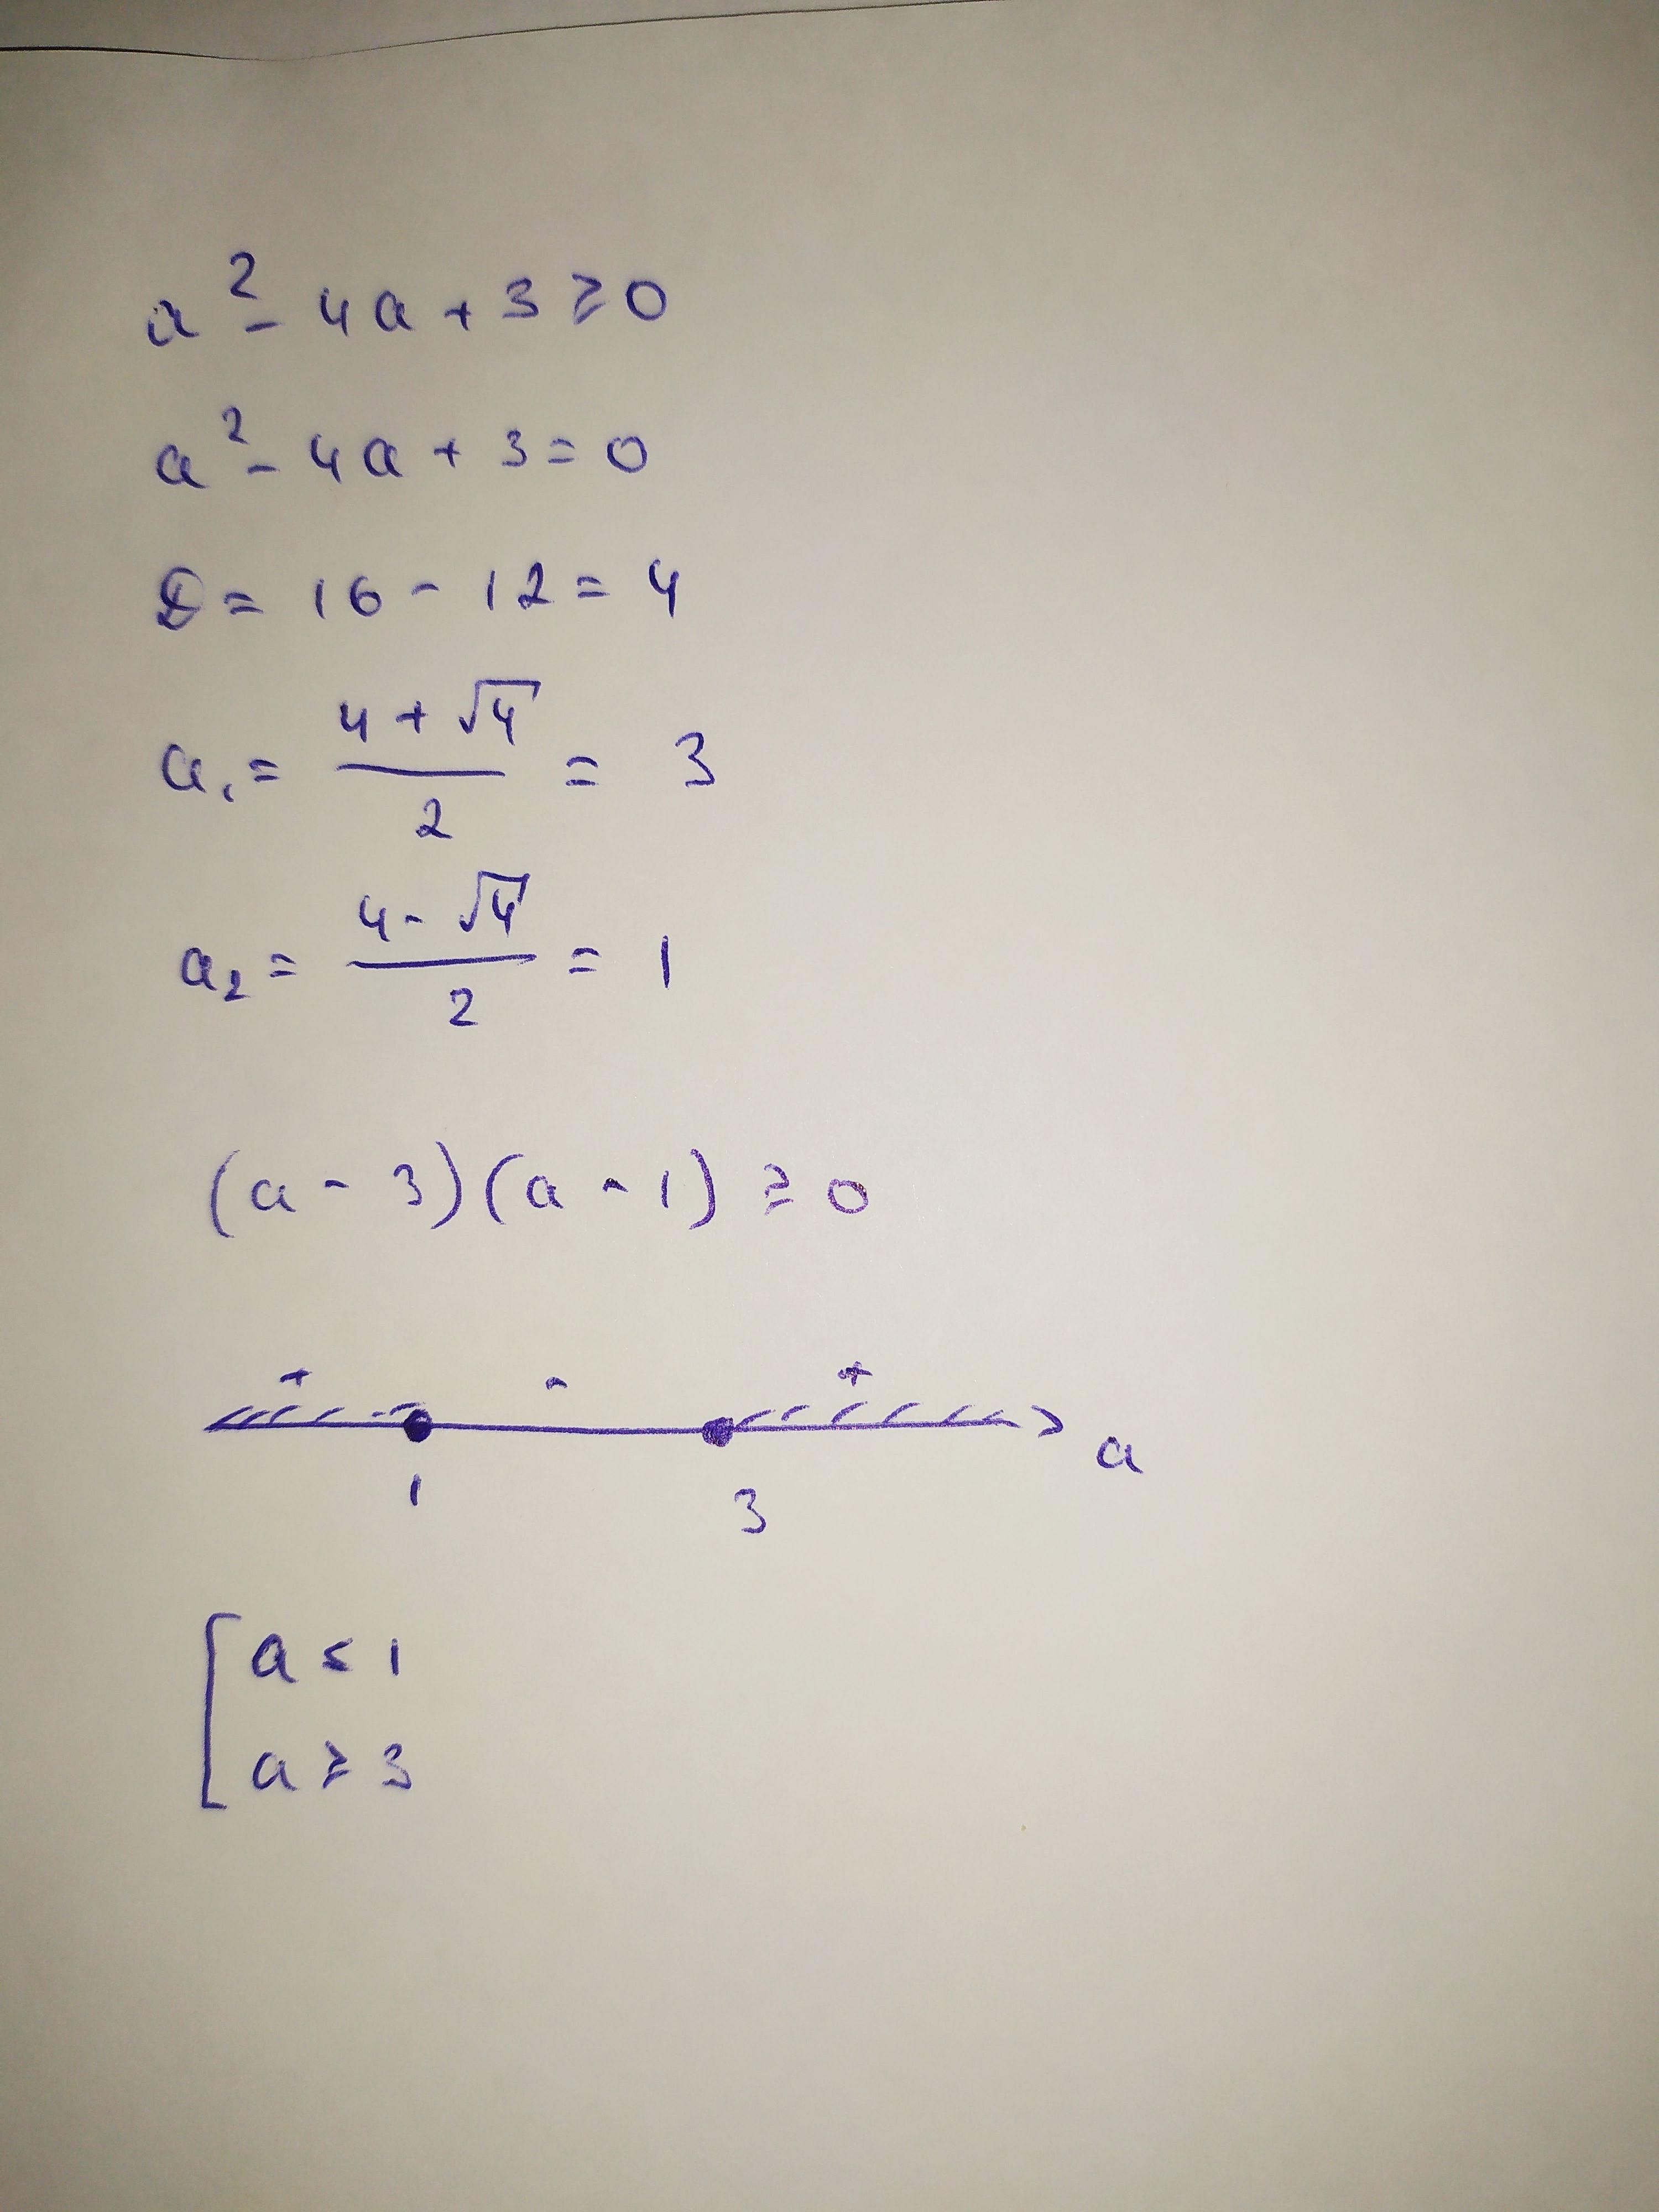 a² - 4a + 3 ≥ 0
a² - 4a + 3 = 0
D = 16 - 12 = 4
a₁ = (4 + √4)/2 = 3
a₂ = (4 - √4)/2 = 1
(a - 3)(a - 1) ≥ 0
+ - +
1 3 a
[ a ≤ 1
a ≥ 3